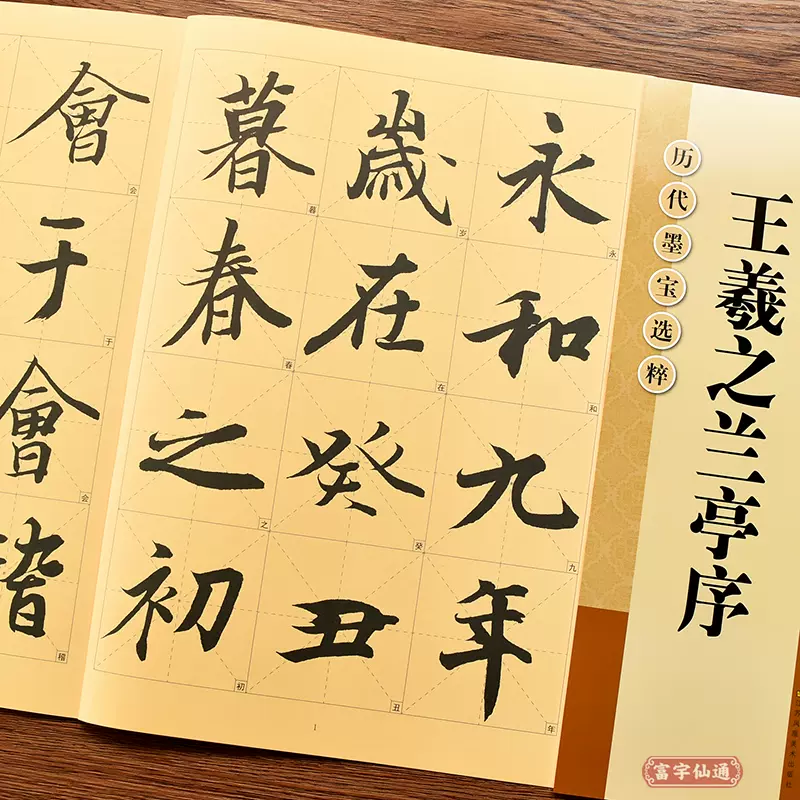 历代墨宝选粹
王羲之兰亭序
永和九年
永 和 九 年
歲在癸丑
岁 在 癸 丑
暮春之初
暮 春 之 初
會于會
会 于 会 稽
1
富字仙通